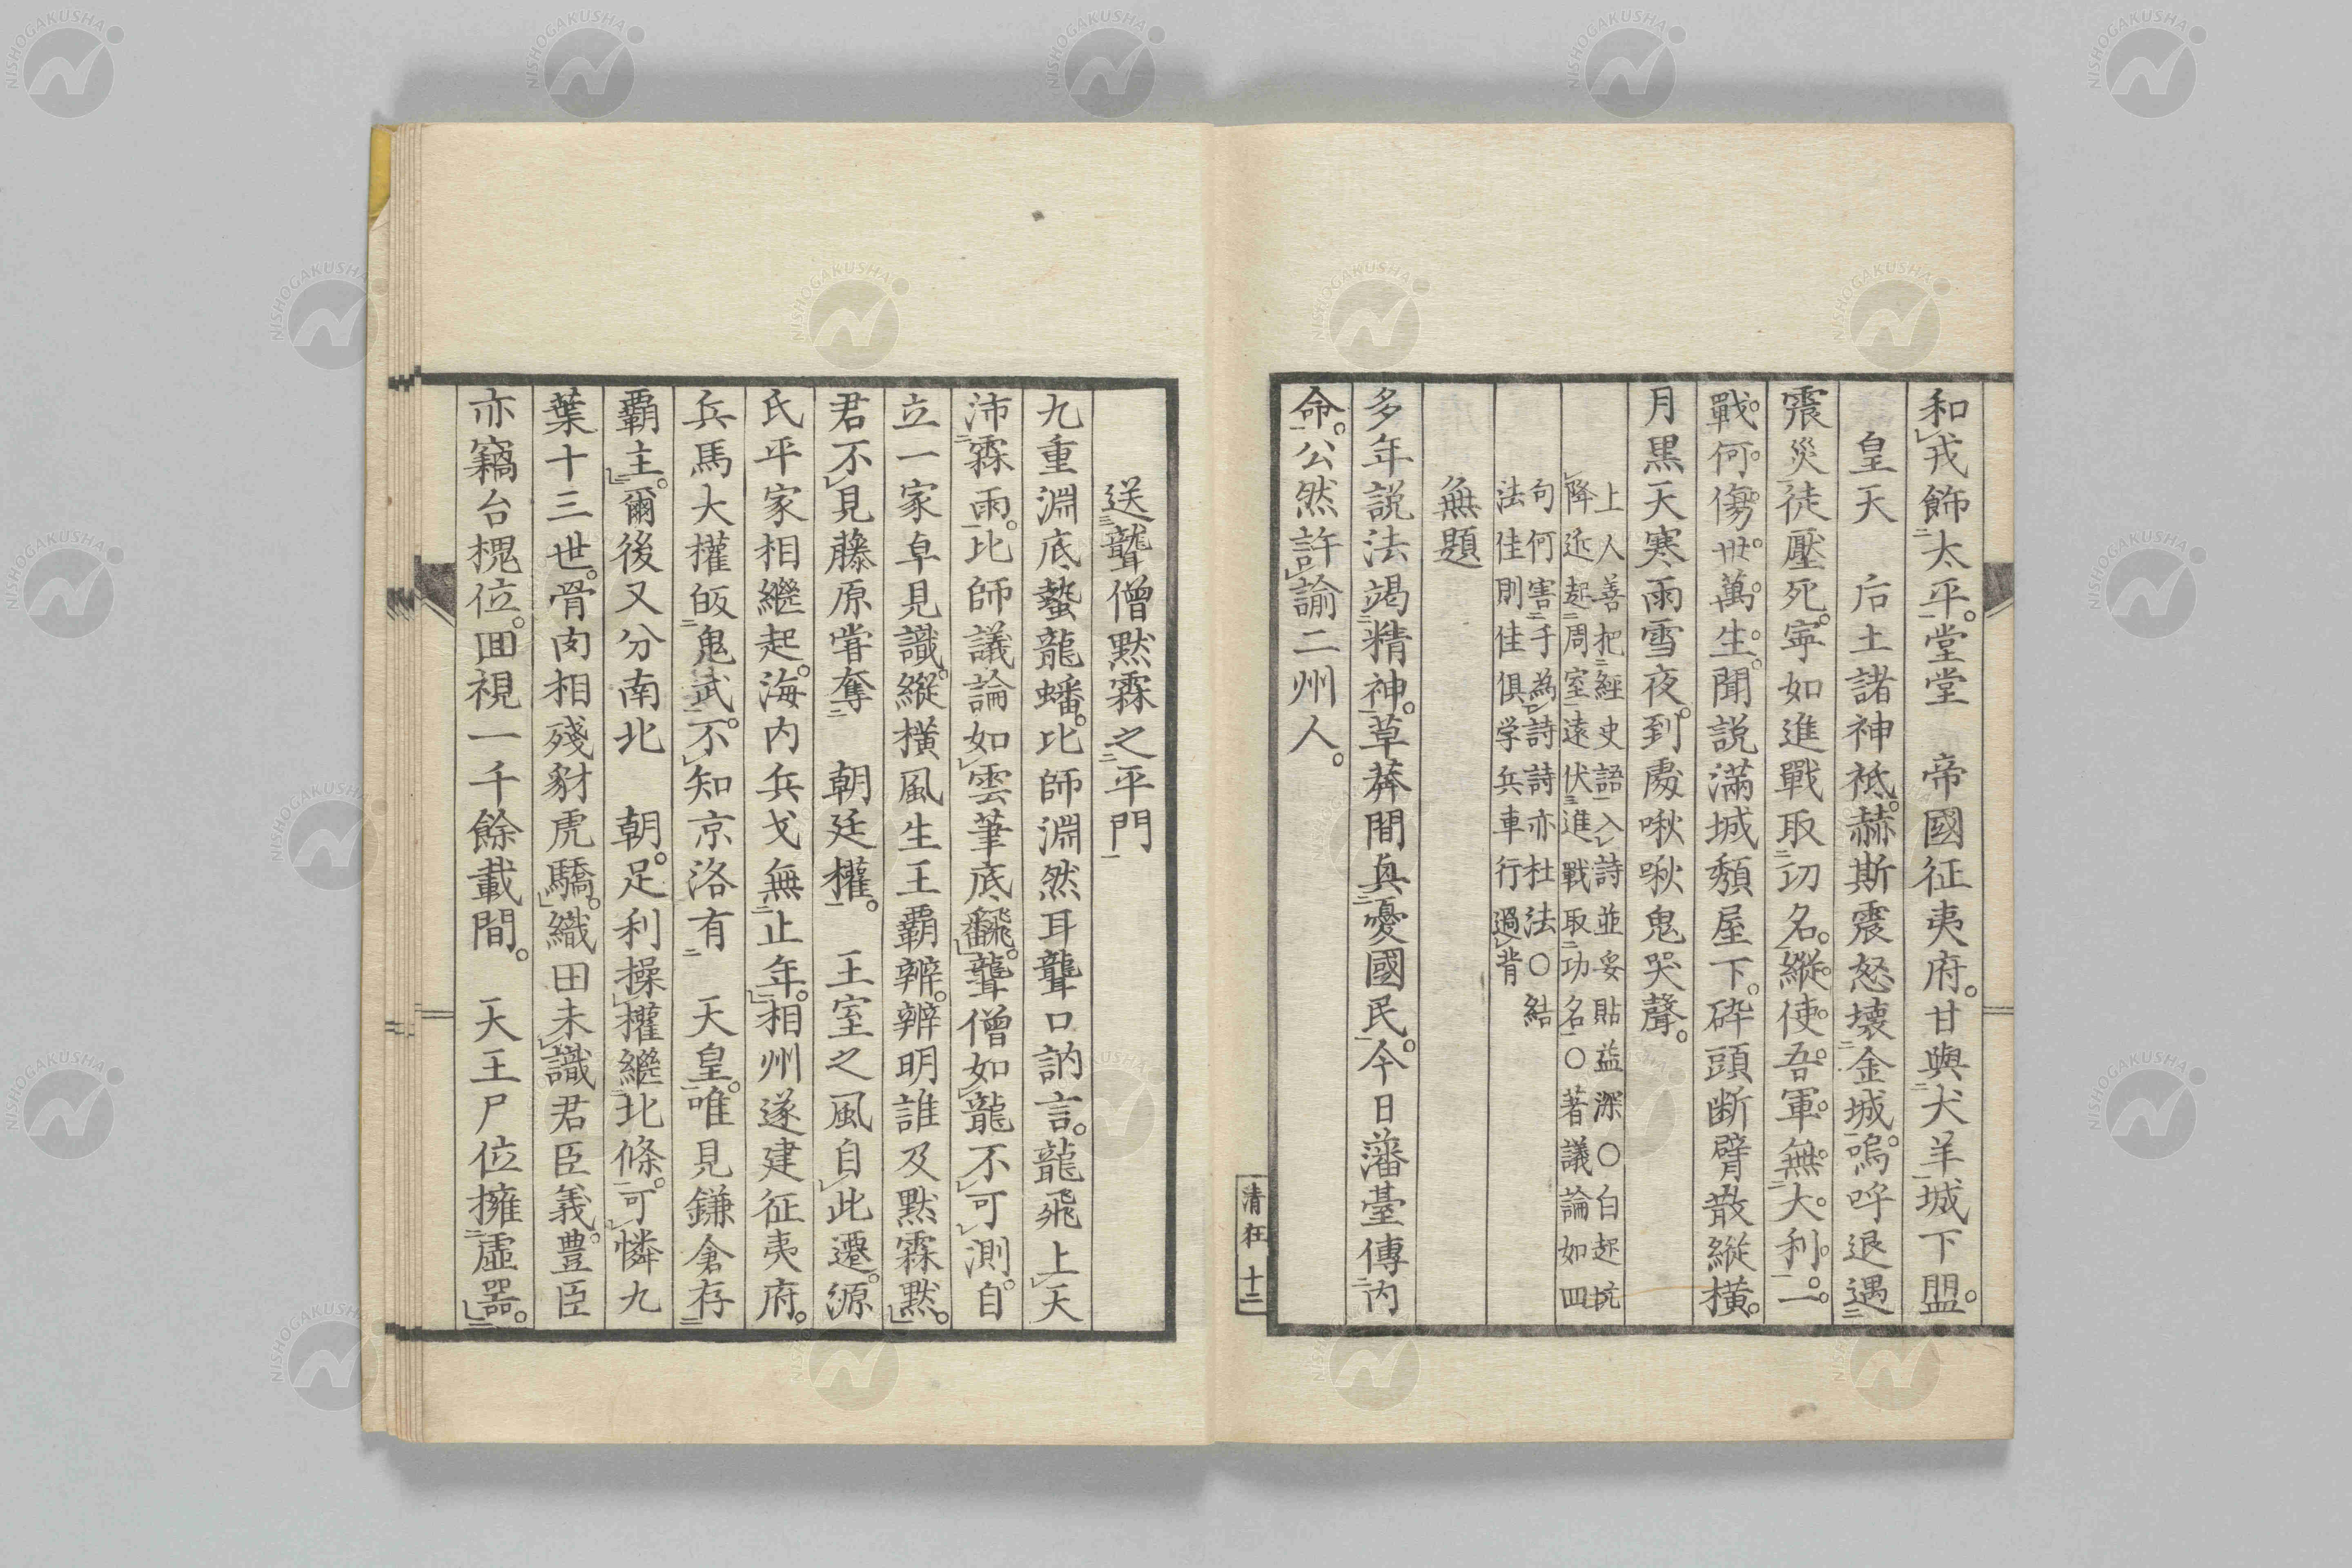 和戎飾太平。堂堂　帝國征夷府。甘與犬羊城下盟。
皇天　后土諸神祗。赫斯震怒壞金城。嗚呼退遇
震災徒壓死。寧如進戰取功名。縱使吾軍無大利。一
戰何傷卅萬生。聞説滿城頽屋下。碎頭断臂散縱橫。
月黒天寒雨雪夜。到處啾啾鬼哭聲。
上人善把經史語入詩並妥貼益深〇白起抗
降近起周室遠伏進戰取功名〇著議論如四
句何害于為詩詩亦杜法〇結
法佳則佳俱学兵車行過肯
無題
多年説法竭精神。草莽間眞憂國民。今日藩臺傳内
命。公然許諭二州人。
清狂 十二
送聾僧默霖之平門
九重淵底蟄龍蟠。比師淵然耳聾口訥言。龍飛上天
沛霖雨。比師議論如雲筆底飜。聾僧如龍不可測。自
立一家卓見識。縱橫風生王覇辨。辨明誰及默霖默。
君不見藤原嘗奪　朝廷權。　王室之風自此遷。源
氏平家相繼起。海内兵戈無止年。相州遂建征夷府。
兵馬大權皈鬼武。不知京洛有　天皇。唯見鎌倉存
覇主。爾後又分南北　朝。足利操權繼北條。可憐九
葉十三世。骨肉相殘豺虎驕。織田未識君臣義。豊臣
亦竊台槐位。囬視一千餘載間。　天王尸位擁虛器。